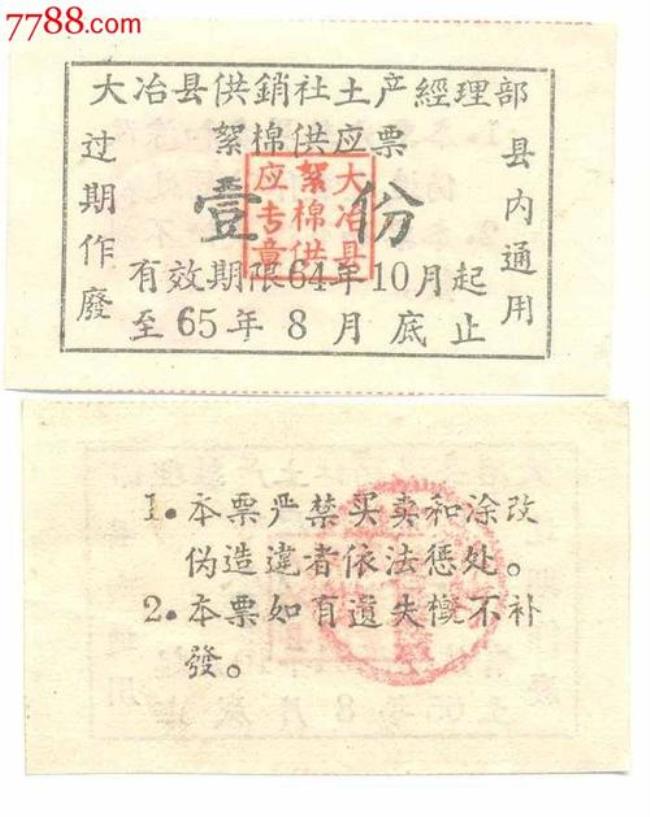 7788.com
大冶县供銷社土产經理部
絮棉供应票
过期作廢
县内通用
壹份
大冶县
絮棉供
应专章
有效期限64年10月起
至65年8月底止
1.本票严禁买卖和涂改
伪造違者依法惩处。
2.本票如有遺失概不补
發。